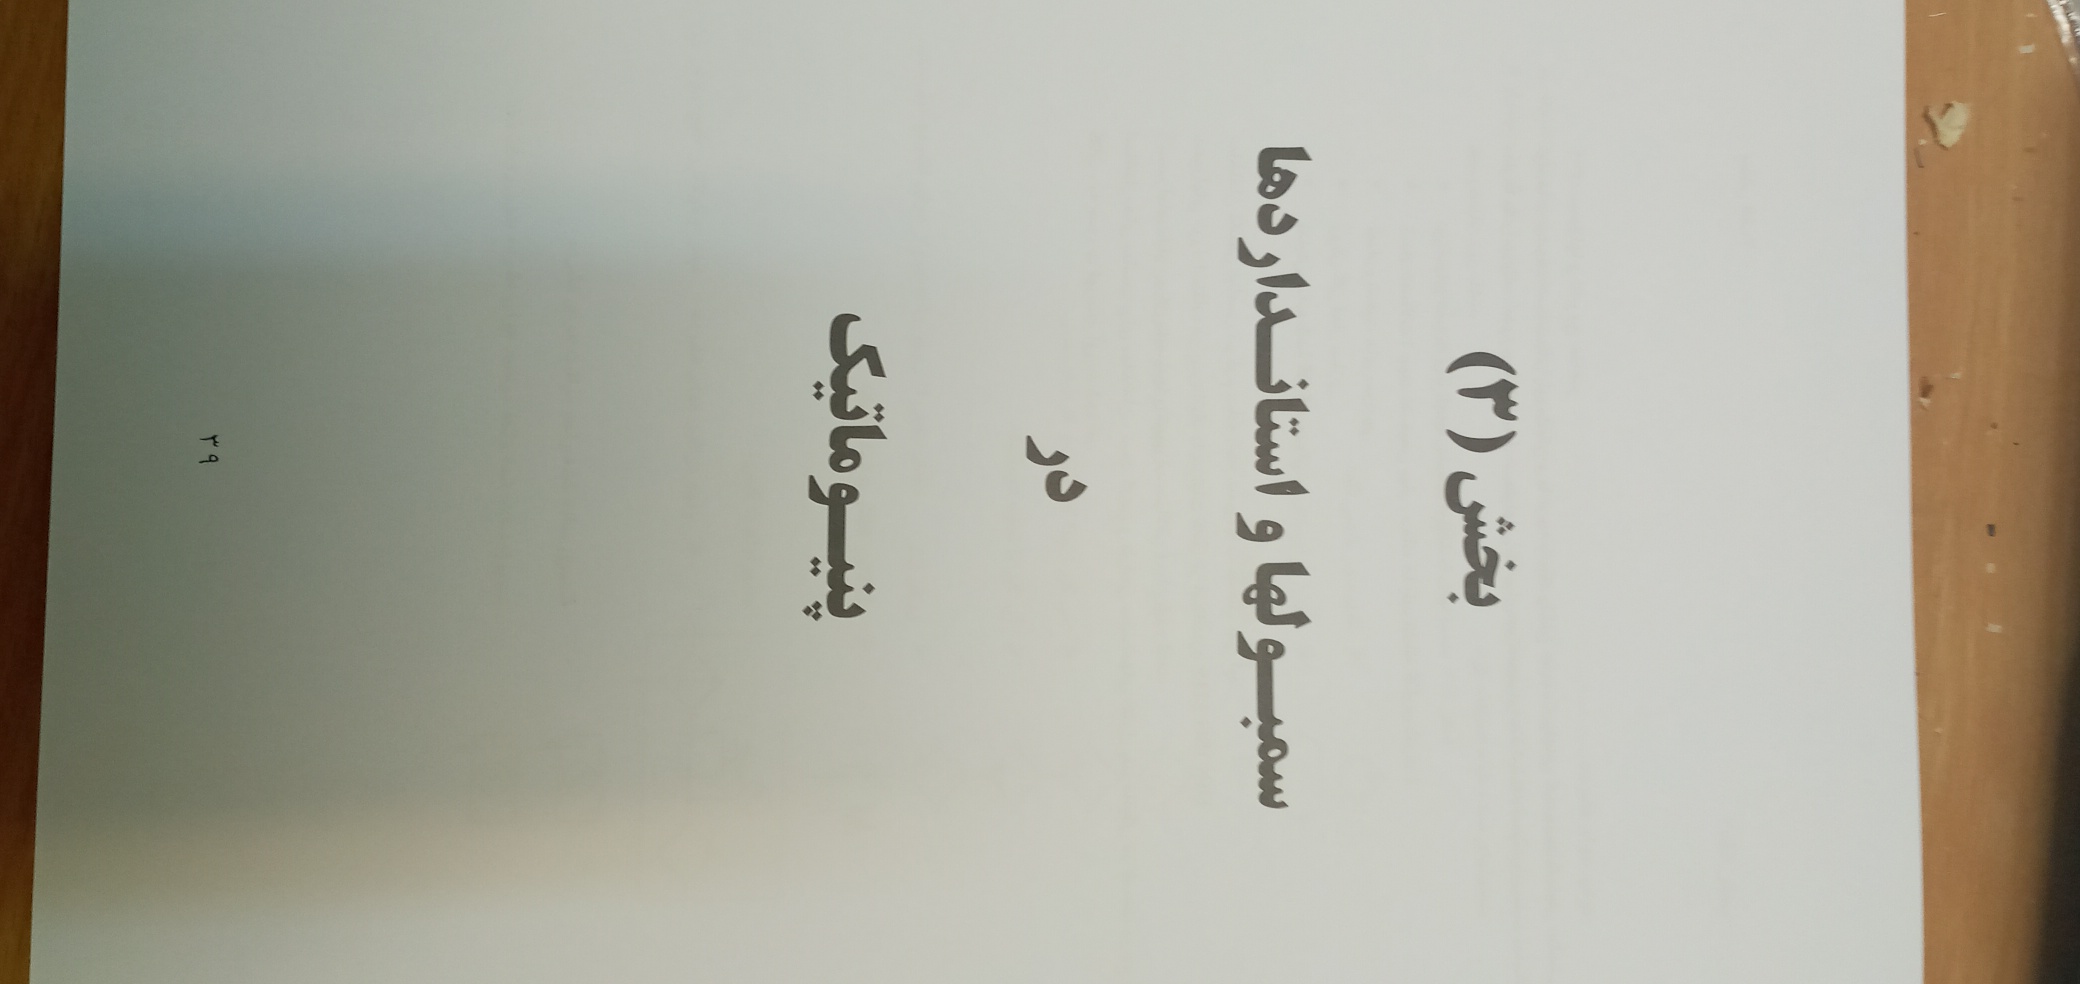 بخش (۳)
سمبـولها و استانـداردها
در
پنیـوماتیک
۳۹